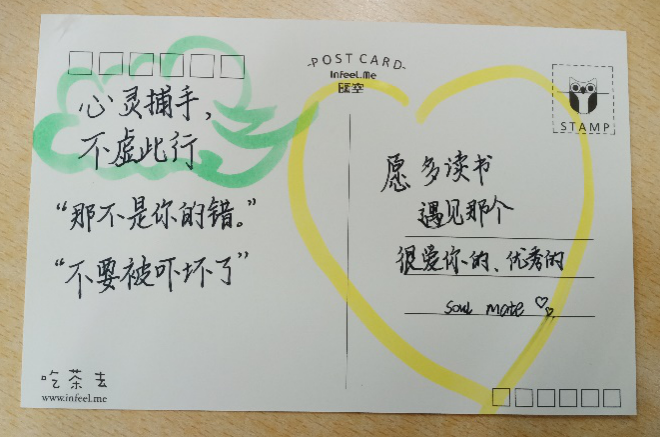 POST CARD
Infeel.Me
STAMP
心灵捕手，
不虚此行
“那不是你的错。”
“不要被吓坏了”
愿多读书
遇见那个
很爱你的、优秀的
soul mate
吃茶去
www.infeel.me